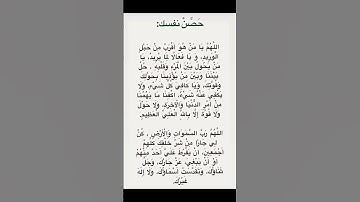 حَصِّنْ نفسك:
اللَّهُمَّ يَا مَنْ هُوَ أَقْرَبُ مِنْ حَبْلِ
الْوَرِيدِ، وَ يَا فَعَّالًا لِمَا يُرِيدُ، يَا
مَنْ يَحُولُ بَيْنَ الْمَرْءِ وَقَلْبِهِ ، حُلْ
بَيْنَنَا وَبَيْنَ مَنْ يُؤْذِينَا بِحَوْلِكَ
وَقُوَّتِكَ، وَيَا كَافِيَ كُلِّ شَيْءٍ، وَلَا
يَكْفِي عَنْهُ شَيْءٌ، اكْفِنَا مَا يُهِمُّنَا
مِنْ أَمْرِ الدُّنْيَا وَالْآخِرَةِ، وَلَا حَوْلَ
وَلَا قُوَّةَ إِلَّا بِاللَّهِ الْعَلِيِّ الْعَظِيمِ.
اللَّهُمَّ رَبَّ السَّمَوَاتِ وَالْأَرْضِ ، كُنْ
لِي جَارًا مِنْ شَرِّ خَلْقِكَ كُلِّهِمْ
أَجْمَعِينَ، أَنْ يَفْرُطَ عَلَيَّ أَحَدٌ مِنْهُمْ
أَوْ أَنْ يَبْغِيَ، عَزَّ جَارُكَ، وَجَلَّ
ثَنَاؤُكَ، وَتَقَدَّسَتْ أَسْمَاؤُكَ، وَلَا إِلَهَ
غَيْرُكَ.